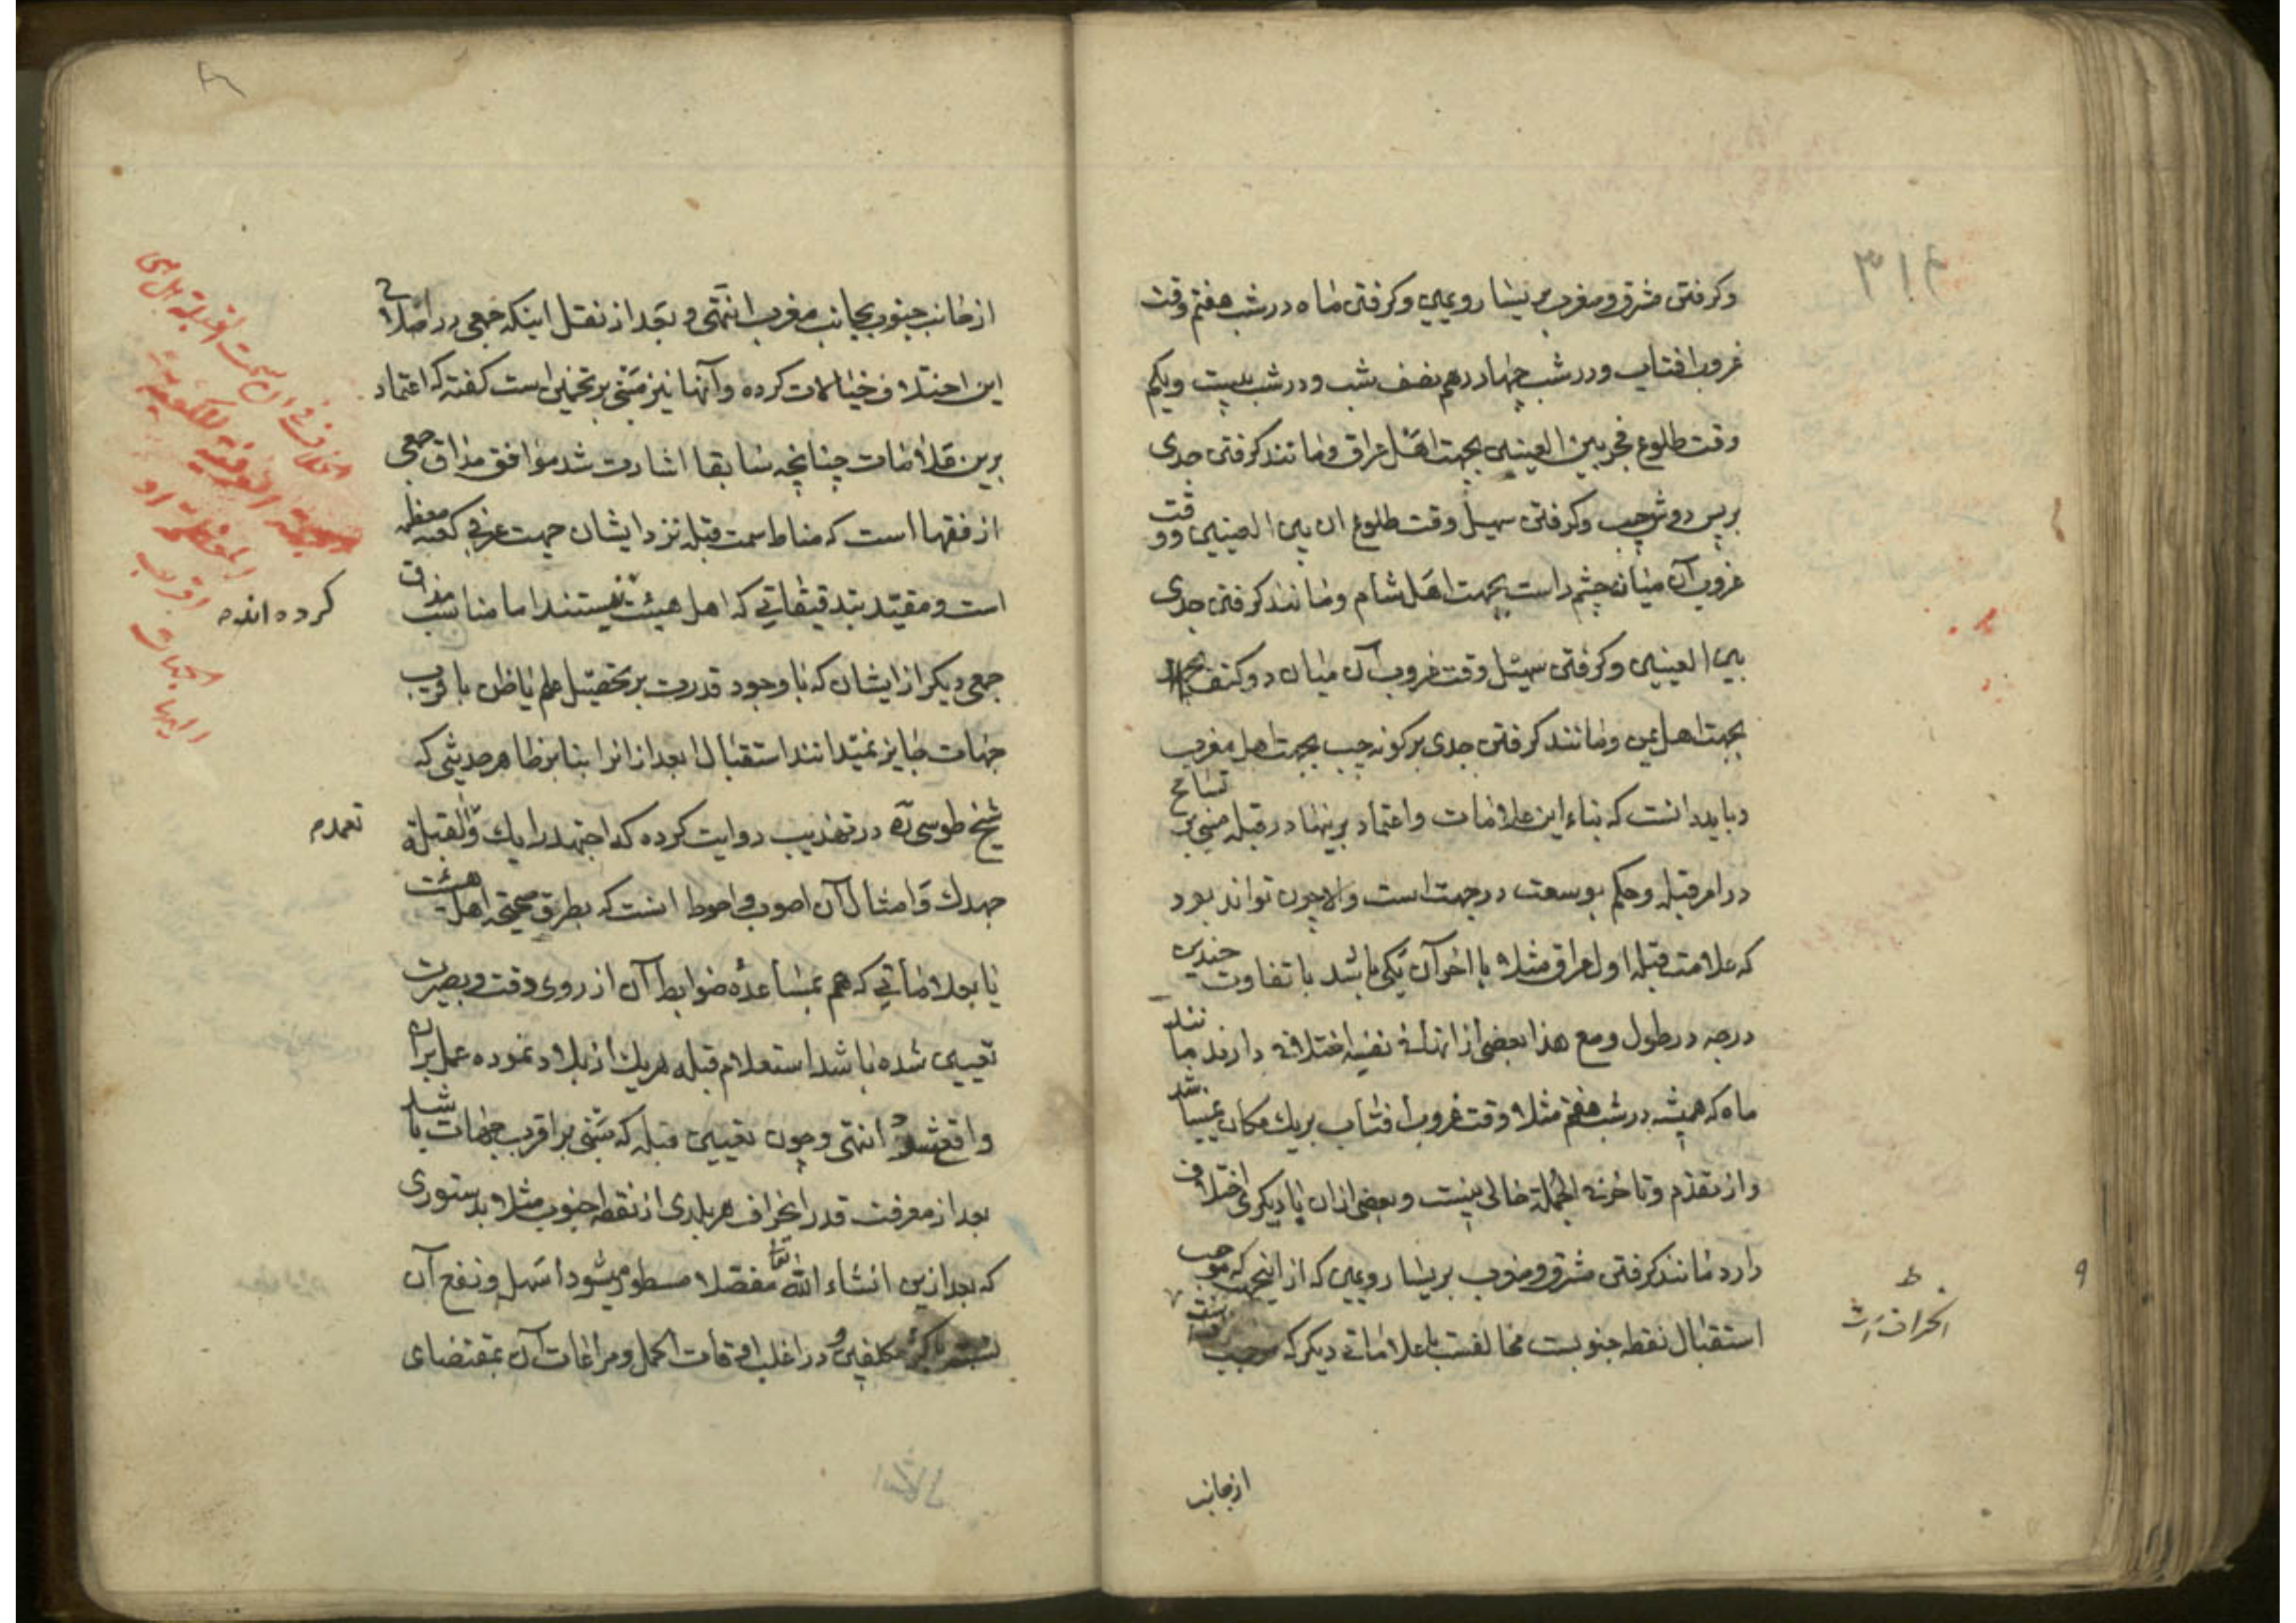 ۳۱۴
وکرفتن مشرق ومغرب بر یسار ویمین وکرفتن ماه در شب هفتم وقت
غروب افتاب ودر شب چهاردهم نصف شب ودر شب بیست ویکم
وقت طلوع فجر بین العینین بجهت اهل عراق ومانند کرفتن جدی
بر پس دوش چپ وکرفتن سهیل وقت طلوع ان بین العینین ووقت
غروب آن میانه چشم راست بجهت اهل شام ومانند کرفتن جدی
بین العینین وکرفتن سهیل وقت غروب آن میان دو کتف
بجهت اهل یمن ومانند کرفتن جدی بر کونه چپ بجهت اهل مغرب
وباید دانست که بناء این علامات واعتماد برینها در قبله مبنی بر تسامح
در امر قبله وحکم بوسعت در جهت است والا چون تواند بود
که علامت قبله اول عراق مثلا با اخر آن یکی باشد با تفاوت چندین
درجه در طول ومع هذا بعضی از انها فی نفسه اختلافی دارند مانند
ماه که همیشه در شب هفتم مثلا وقت غروب افتاب بر یک مکان نمیباشد
واز تقدم وتاخر فی الجمله خالی نیست وبعضی از ان با دیکری اختلاف
دارد مانند کرفتن مشرق ومغرب بر یسار ویمین که از اینجهت که موجب
استقبال نقطه جنوبست مخالفست با علاماتی دیکر که موجب
انحراف است
ازجانب
از جانب جنوب بجانب مغرب انتهی وبعد از نقل اینکه جمعی در اصلاح
این اختلاف خیالات کرده وآنها نیز مبنی بر تخمین است کفته که اعتماد
کرده اند
برین علامات چنانچه سابقا اشارت شد موافق مذاق جمعی
از فقها است که مناط سمت قبله نزد ایشان جهت عرفی کعبه معظمه
است ومقید بتدقیقاتی که اهل هیئت نیستند اما مناسب مذاق
جمعی دیکر از ایشان که با وجود قدرت بر تحصیل علم یا ظن باقرب
جهات جایز نمیدانند استقبال ابعد از انرا بنا بر ظاهر حدیثی که
شیخ طوسی ره در تهذیب روایت کرده که اجتهد رایک والقبلة
تعمد
جهدک وامثال آن اصوب واحوط انست که بطرق صحیحه اهل هیئت
یا بعلاماتی که هم بمساعده ضوابط آن از روی وقت وبصیرت
تعیین شده باشد استعلام قبله هر یک از بلاد نموده عمل بران
واقع شود انتهی وچون تعیین قبله که مبتنی بر اقرب جهات باشد
بعد از معرفت قدر انحراف هر بلدی از نقطه جنوب مثلا بدستوری
که بعد ازین انشاء الله تعا مفصلا مسطور میشود اسهل ونفع آن
مکلفین ودر اغلب اوقات اکمل ومراعات آن بمقتضای